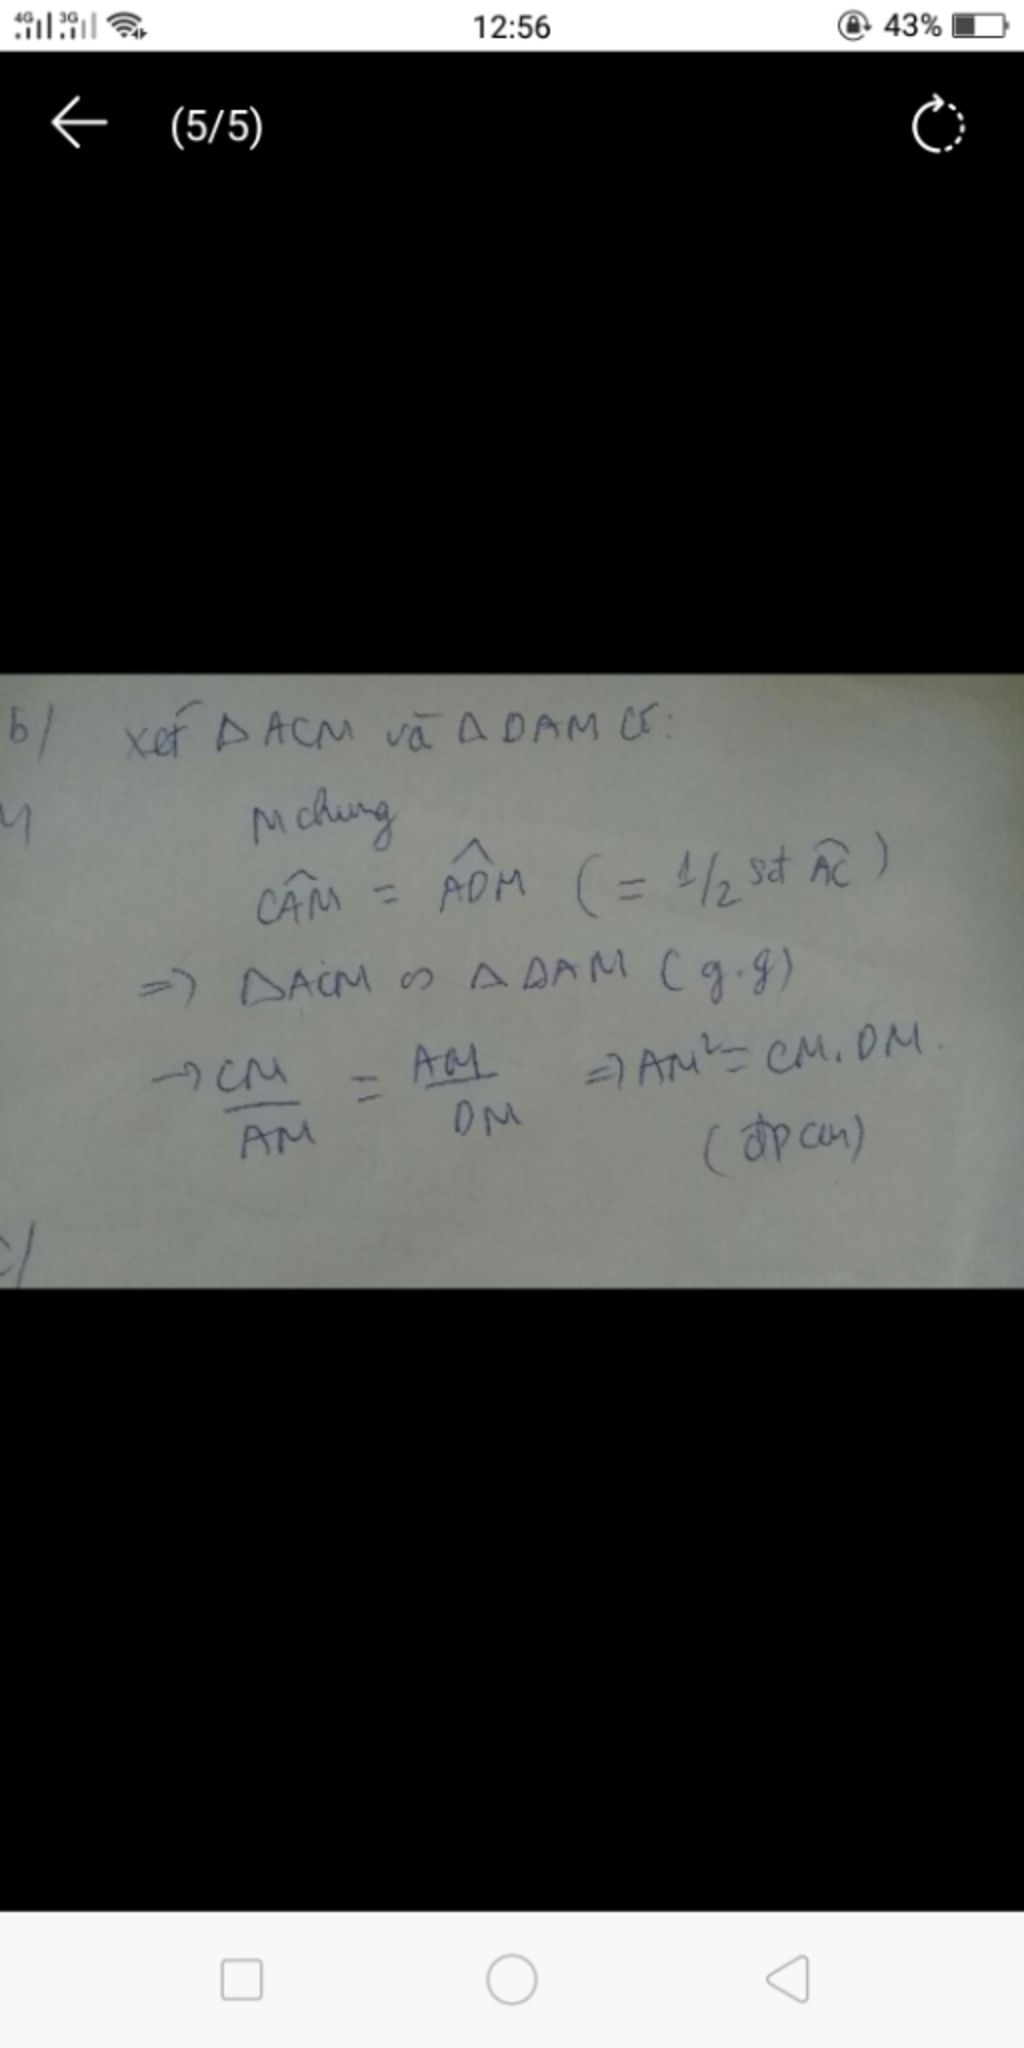 4G 3G 12:56 43%
(5/5)
b/ xét Δ ACM và Δ DAM có:
M chung
CÂM = ADM (= 1/2 sđ AC)
=> ΔACM ∽ Δ DAM (g.g)
→ CM/AM = AM/DM => AM² = CM. DM.
(đpcm)
c/